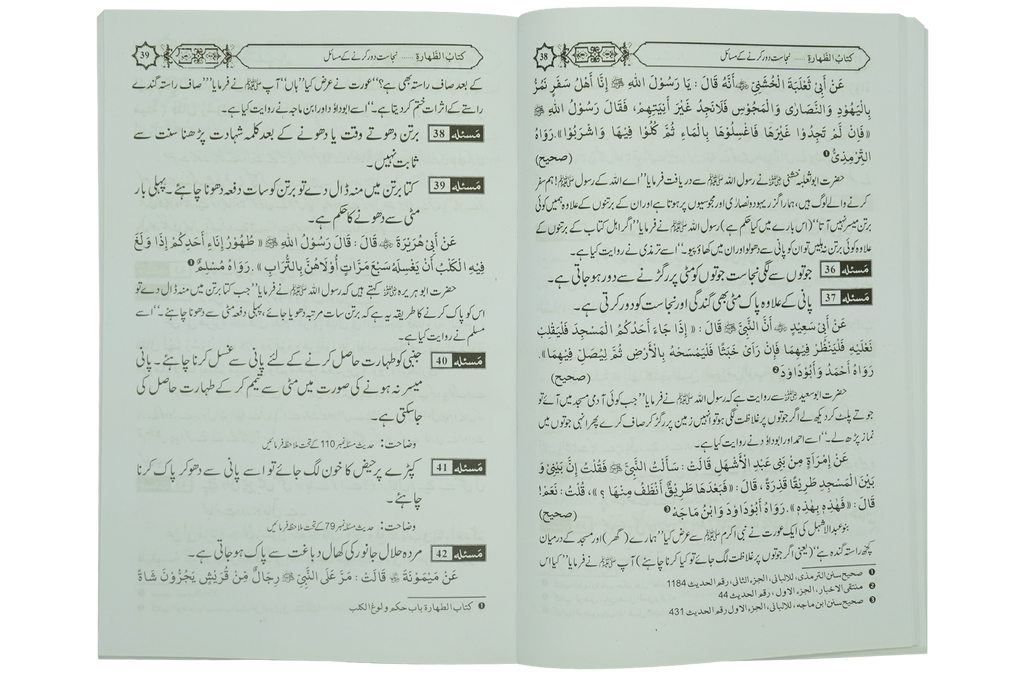 38
کتابُ الطّھارۃ ..... نجاست دور کرنے کے مسائل
عَنْ أَبِىْ ثَعْلَبَةَ الْخُشَنِىِّ ؓ أَنَّهُ قَالَ : يَا رَسُوْلَ اللهِ ﷺ إِنَّا أَهْلُ سَفَرٍ نَمُرُّ
بِالْيَهُوْدِ وَالنَّصَارٰى وَالْمَجُوْسِ فَلَانَجِدُ غَيْرَ أٰنِيَتِهِمْ، فَقَالَ رَسُوْلُ اللهِ ﷺ
«فَاِنْ لَّمْ تَجِدُوْا غَيْرَهَا فَاغْسِلُوْهَا بِالْمَاءِ ثُمَّ كُلُوْا فِيْهَا وَاشْرَبُوْا».رَوَاهُ
التِّرْمِذِىُّ ❶ (صحیح)
حضرت ابوثعلبہ خشنی ؓ نے رسول اللہ ﷺ سے دریافت فرمایا ”اے اللہ کے رسول ﷺ! ہم سفر
کرنے والے لوگ ہیں، ہمارا گزر یہود و نصاریٰ اور مجوسیوں پر ہوتا ہے اور ان کے برتنوں کے علاوہ ہمیں کوئی
برتن میسر نہیں آتا“ (اس بارے میں کیا حکم ہے) رسول اللہ ﷺ نے فرمایا ”اگر اہل کتاب کے برتنوں کے
علاوہ کوئی برتن نہ ملیں تو ان کو پانی سے دھولو اور ان میں کھاؤ پیو۔“ اسے ترمذی نے روایت کیا ہے۔
مَسئلہ 36 جوتوں سے لگی نجاست جوتوں کو مٹی پر رگڑنے سے دور ہوجاتی ہے۔
مَسئلہ 37 پانی کے علاوہ پاک مٹی بھی گندگی اور نجاست کو دور کرتی ہے۔
عَنْ أَبِىْ سَعِيْدٍ ؓ أَنَّ النَّبِىَّ ﷺ قَالَ : « إِذَا جَاءَ أَحَدُكُمُ الْمَسْجِدَ فَلْيَقْلِبْ
نَعْلَيْهِ فَلْيَنْظُرْ فِيْهِمَا فَإِنْ رَأٰى خَبَثًا فَلْيَمْسَحْهُ بِالْأَرْضِ ثُمَّ لِيُصَلِّ فِيْهِمَا».
رَوَاهُ أَحْمَدُ وَأَبُوْدَاوٗدَ ❷ (صحیح)
حضرت ابوسعید ؓ سے روایت ہے کہ رسول اللہ ﷺ نے فرمایا ”جب کوئی آدمی مسجد میں آئے تو
جوتے پلٹ کر دیکھ لے اگر جوتوں پر غلاظت لگی ہو تو انہیں زمین پر رگڑ کر صاف کرے پھر انہی جوتوں میں
نماز پڑھ لے۔“ اسے احمد اور ابوداؤد نے روایت کیا ہے۔
عَنْ إِمْرَأَةٍ مِنْ بَنِى عَبْدِ الْأَشْهَلِ قَالَتْ : سَأَلْتُ النَّبِىَّ ﷺ فَقُلْتُ إِنَّ بَيْنِىْ وَ
بَيْنَ الْمَسْجِدِ طَرِيْقًا قَذِرَةً ، قَالَ: « فَبَعْدَهَا طَرِيْقٌ أَنْظَفُ مِنْهَا ؟ »، قُلْتُ : نَعَمْ!
قَالَ : « فَهٰذِهِ بِهٰذِهِ » .رَوَاهُ أَبُوْدَاوٗدَ وَابْنُ مَاجَهَ ❸ (صحیح)
بنو عبدالاشہل کی ایک عورت نے نبی اکرم ﷺ سے عرض کیا ”ہمارے (گھر) اور مسجد کے درمیان
کچھ راستہ گندہ ہے“ (یعنی اگر جوتوں پر غلاظت لگ جائے تو کیا کرنا چاہئے) آپ ﷺ نے فرمایا ”کیا اس
❶ صحیح سنن الترمذی، للالبانی، الجزء الثانی، رقم الحدیث 1184
❷ منتقی الاخبار، الجزء الاول ، رقم الحدیث 44
❸ صحیح سنن ابن ماجه، للالبانی، الجزء الاول رقم الحدیث 431
39
کتابُ الطّھارۃ ..... نجاست دور کرنے کے مسائل
کے بعد صاف راستہ بھی ہے؟“ عورت نے عرض کیا ”ہاں“ آپ ﷺ نے فرمایا ”صاف راستہ گندے
راستے کے اثرات ختم کر دیتا ہے۔“ اسے ابوداؤد اور ابن ماجہ نے روایت کیا ہے۔
مَسئلہ 38 برتن دھوتے وقت یا دھونے کے بعد کلمہ شہادت پڑھنا سنت سے
ثابت نہیں۔
مَسئلہ 39 کتا برتن میں منہ ڈال دے تو برتن کو سات دفعہ دھونا چاہئے۔ پہلی بار
مٹی سے دھونے کا حکم ہے۔
عَنْ أَبِىْ هُرَيْرَةَ ؓ قَالَ : قَالَ رَسُوْلُ اللهِ ﷺ « طُهُوْرُ إِنَاءِ أَحَدِكُمْ إِذَا وَلَغَ
فِيْهِ الْكَلْبُ أَنْ يَغْسِلَهُ سَبْعَ مَرَّاتٍ أُوْلَاهُنَّ بِالتُّرَابِ » . رَوَاهُ مُسْلِمٌ ❶
حضرت ابوہریرہ ؓ کہتے ہیں کہ رسول اللہ ﷺ نے فرمایا ”جب کتا برتن میں منہ ڈال دے تو
اس کو پاک کرنے کا طریقہ یہ ہے کہ برتن سات مرتبہ دھویا جائے، پہلی دفعہ مٹی سے دھونا چاہئے۔“ اسے
مسلم نے روایت کیا ہے۔
مَسئلہ 40 جنبی کو طہارت حاصل کرنے کے لئے پانی سے غسل کرنا چاہئے۔ پانی
میسر نہ ہونے کی صورت میں مٹی سے تیمم کر کے طہارت حاصل کی
جاسکتی ہے۔
وضاحت: حدیث مسئلہ نمبر 110 کے تحت ملاحظہ فرمائیں
مَسئلہ 41 کپڑے پر حیض کا خون لگ جائے تو اسے پانی سے دھو کر پاک کرنا
چاہئے۔
وضاحت: حدیث مسئلہ نمبر 79 کے تحت ملاحظہ فرمائیں
مَسئلہ 42 مردہ حلال جانور کی کھال دباغت سے پاک ہوجاتی ہے۔
عَنْ مَيْمُوْنَةَ ؓ قَالَتْ : مَرَّ عَلَى النَّبِىِّ ﷺ رِجَالٌ مِّنْ قُرَيْشٍ يَجُرُّوْنَ شَاةً
❶ کتاب الطهارة باب حکم ولوغ الکلب